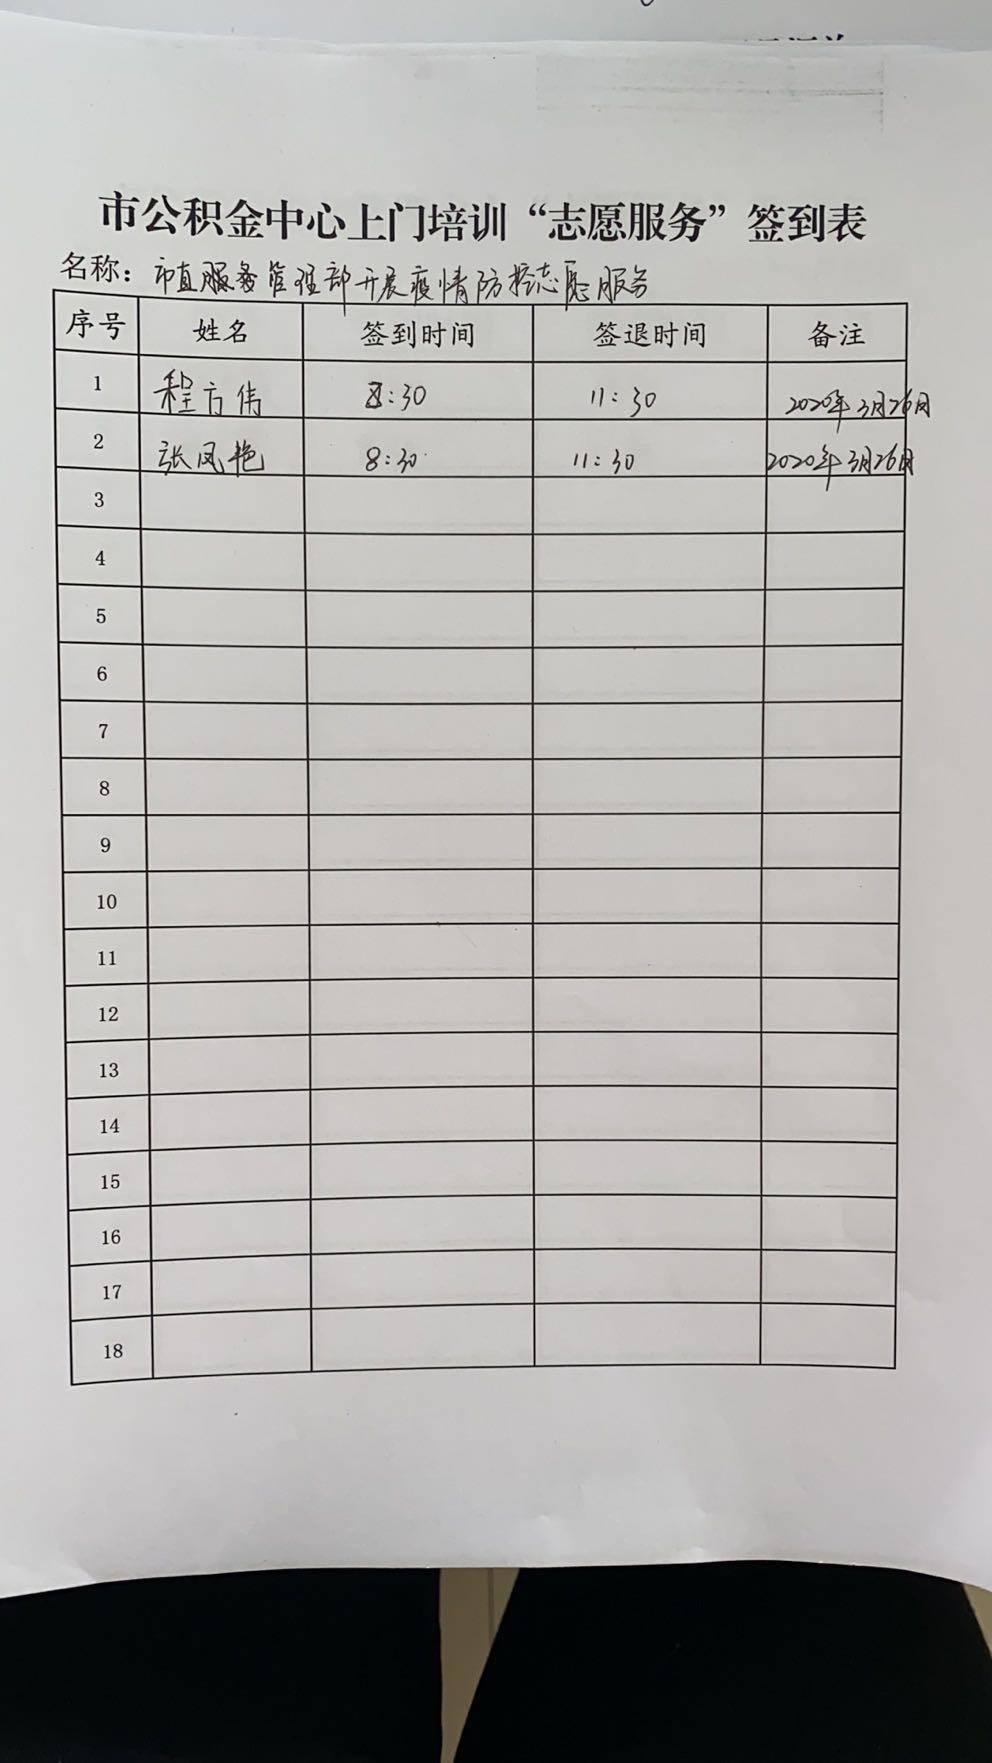 市公积金中心上门培训“志愿服务”签到表
名称：市直服务管理部开展疫情防控志愿服务
序号 姓名 签到时间 签退时间 备注
1 程方伟 8:30 11:30 2020年3月26日
2 张凤艳 8:30 11:30 2020年3月26日
3
4
5
6
7
8
9
10
11
12
13
14
15
16
17
18